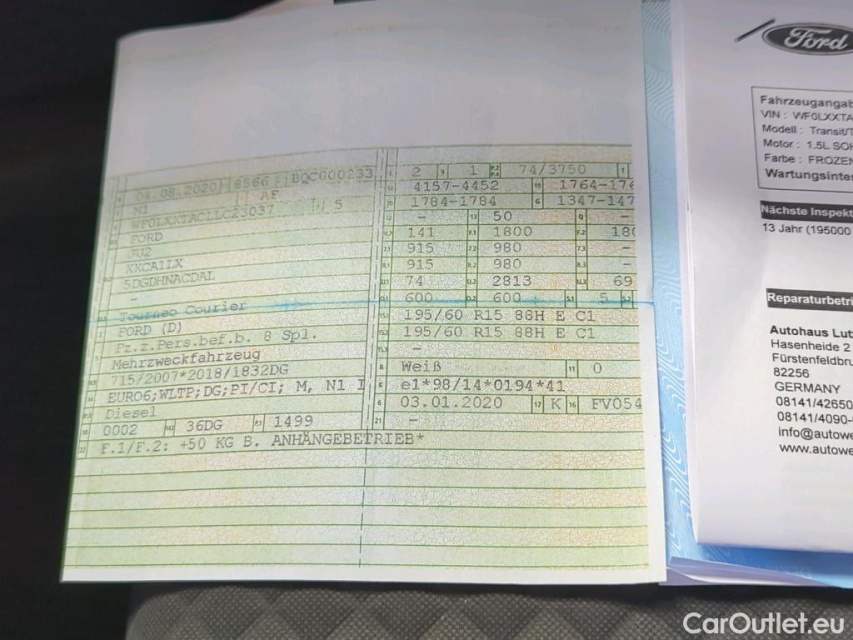 04.08.2020 8566 BQC000233
N1 AF
WF0LXXTACLLC23037 5
FORD
JU2
XKCA1LX
5DGDHNACDAL
Tourneo Courier
FORD (D)
Fz.z.Pers.bef.b. 8 Spl.
Mehrzweckfahrzeug
715/2007*2018/1832DG
EURO6;WLTP;DG;PI/CI; M, N1 I
Diesel
0002 36DG 1499
F.1/F.2: +50 KG B. ANHÄNGEBETRIEB*
2 1 74/3750
4157-4452 1764-176
1784-1784 1347-147
- 50 -
141 1800 180
915 980 -
915 980 -
74 2813 69
600 600 5
195/60 R15 88H E C1
195/60 R15 88H E C1
-
Weiß 0
e1*98/14*0194*41
03.01.2020 K FV054
-
Ford
Fahrzeugangab
VIN : WF0LXXTA
Modell : Transit/T
Motor : 1.5L SOH
Farbe : FROZEN
Wartungsinter
Nächste Inspekt
13 Jahr (195000
Reparaturbetri
Autohaus Lut
Hasenheide 2
Fürstenfeldbru
82256
GERMANY
08141/42650
08141/4090-
info@autowe
www.autowe
CarOutlet.eu